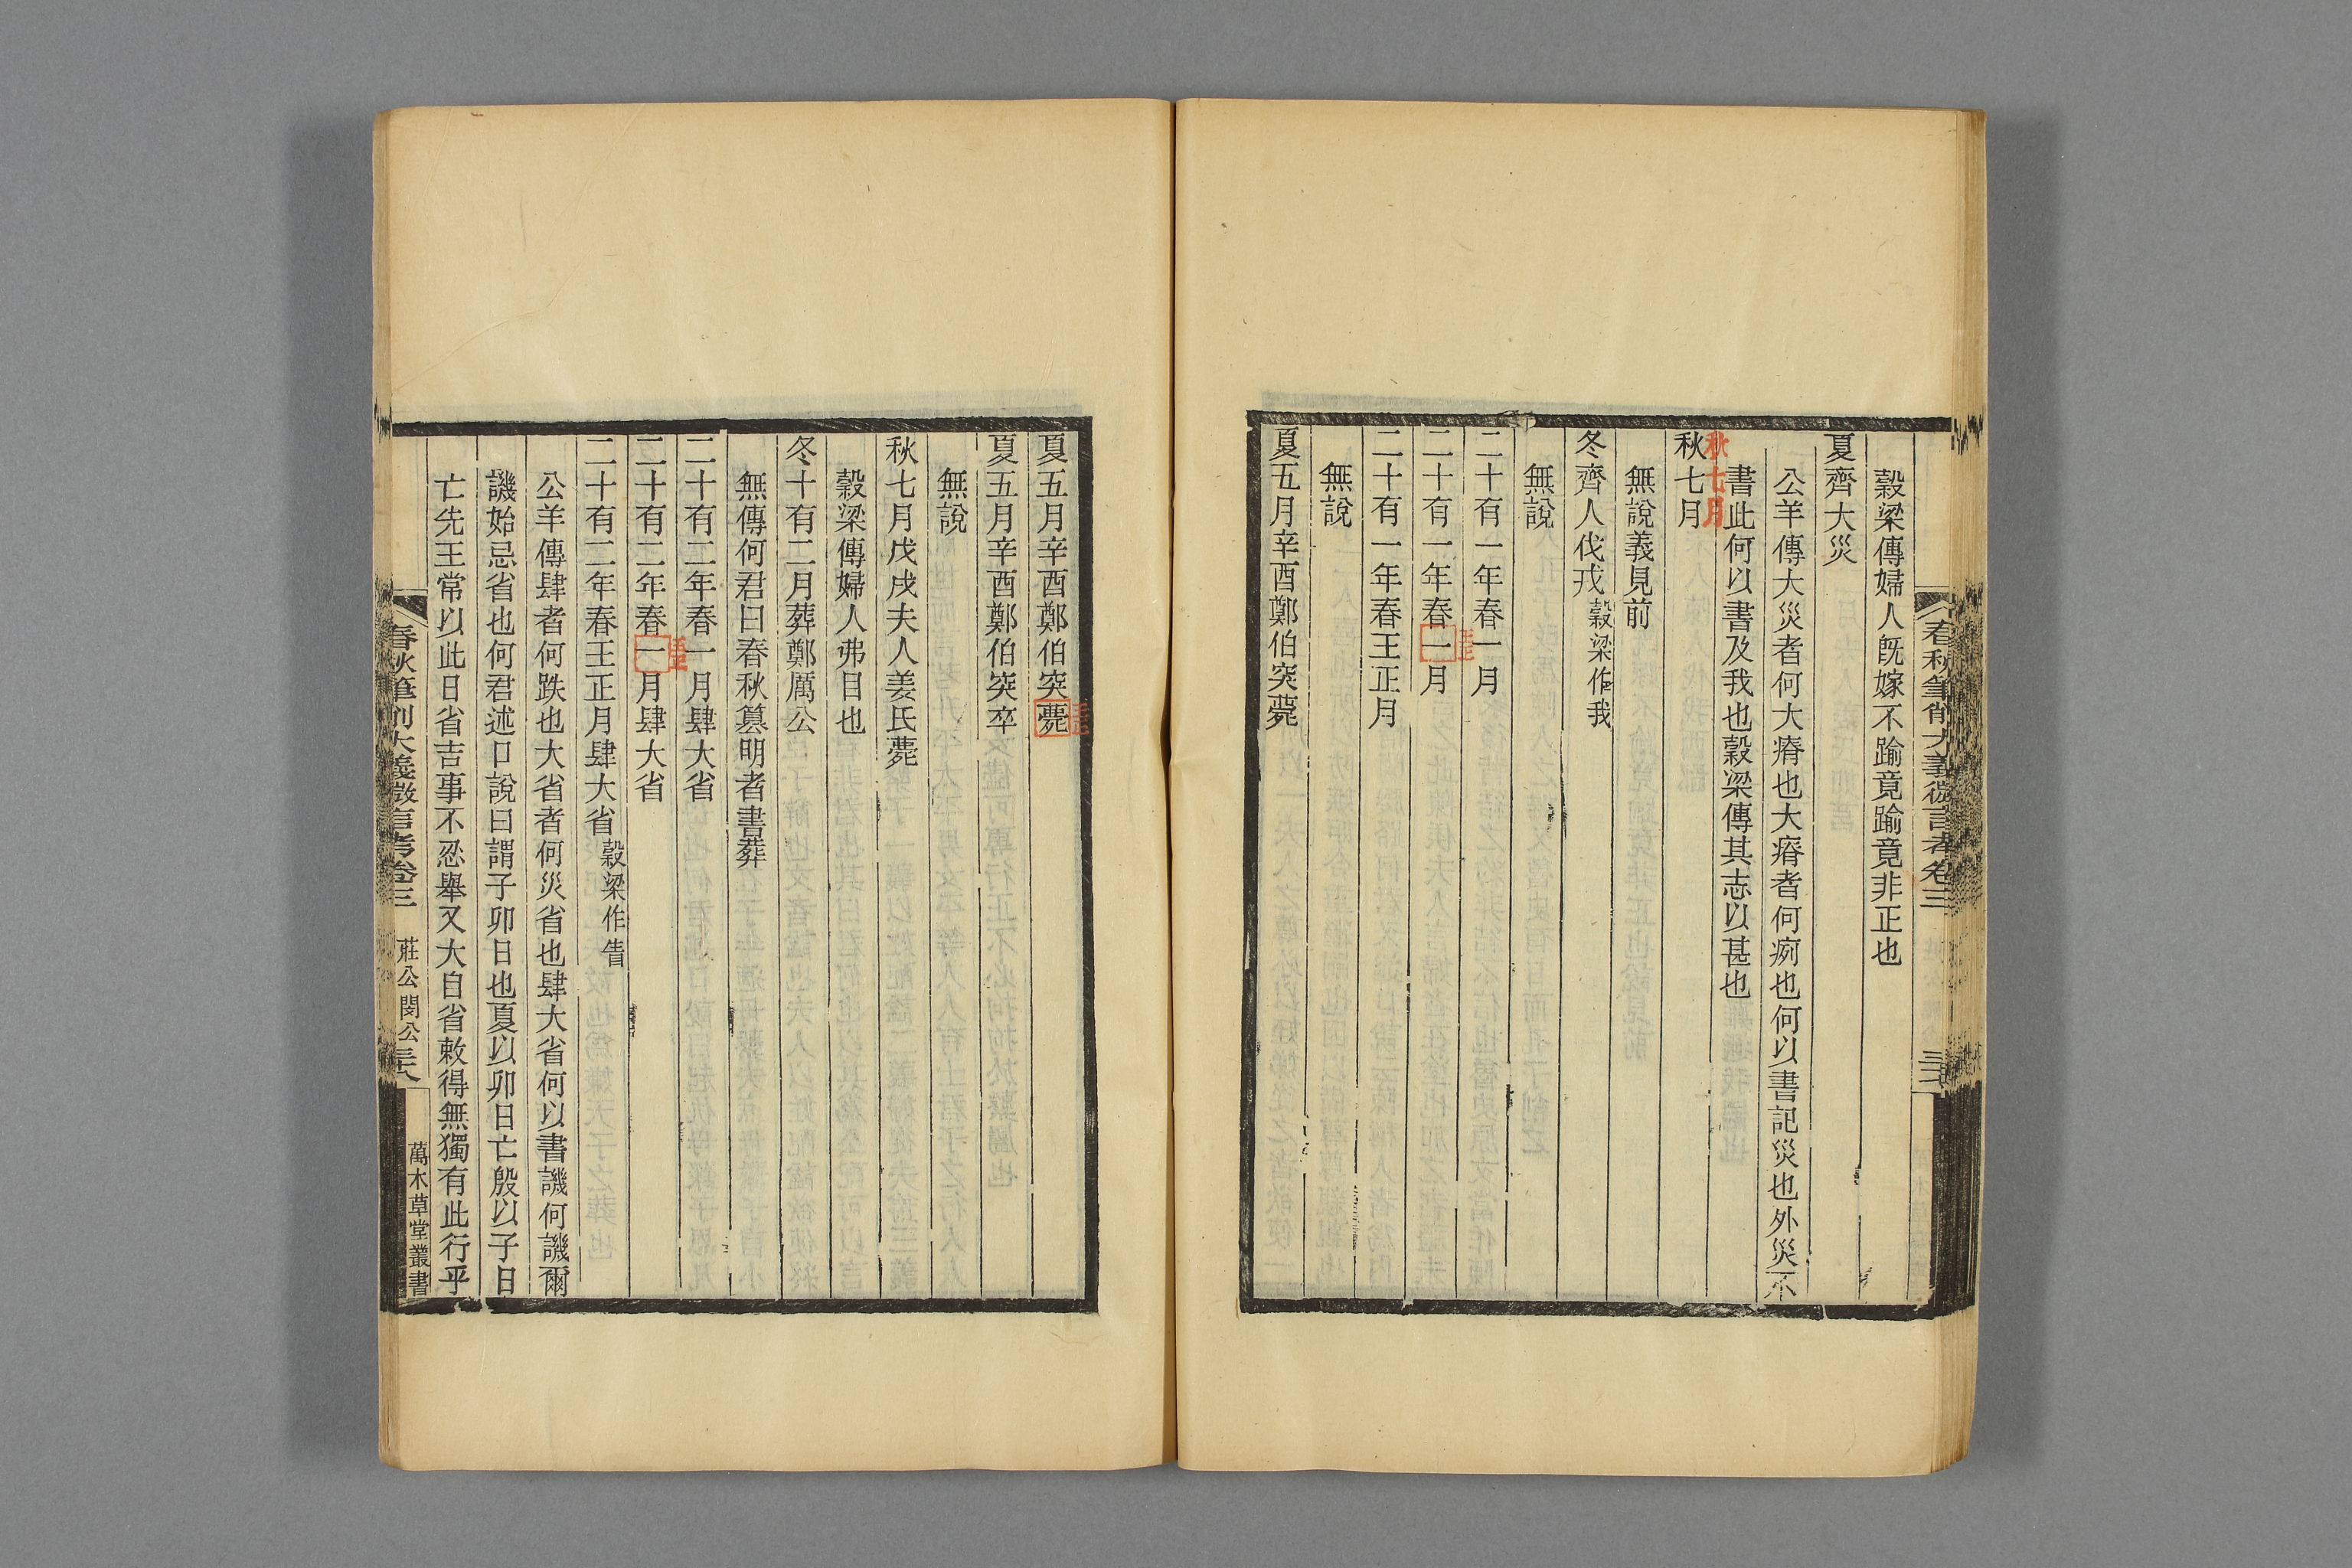 春秋筆削大義微言考卷三
穀梁傳婦人旣嫁不踰竟踰竟非正也
夏齊大災
公羊傳大災者何大瘠也大瘠者何㾐也何以書記災也外災不
書此何以書及我也穀梁傳其志以甚也
秋七月
秋七月
無說義見前
冬齊人伐戎穀梁作我
無說
二十有一年春一月
二十有一年春一月
王正
二十有一年春王正月
無說
夏五月辛酉鄭伯突薨
夏五月辛酉鄭伯突薨
夏五月辛酉鄭伯突卒
無說
秋七月戊戌夫人姜氏薨
穀梁傳婦人弗目也
冬十有二月葬鄭厲公
無傳何君曰春秋篡明者書葬
二十有二年春一月肆大省
二十有二年春一月肆大省
王正
二十有二年春王正月肆大省穀梁作眚
公羊傳肆者何跌也大省者何災省也肆大省何以書譏何譏爾
譏始忌省也何君述口說曰謂子卯日也夏以卯日亡殷以子日
亡先王常以此日省吉事不忍舉又大自省敕得無獨有此行乎
春秋筆削大義微言考卷三 莊公閔公 萬木草堂叢書